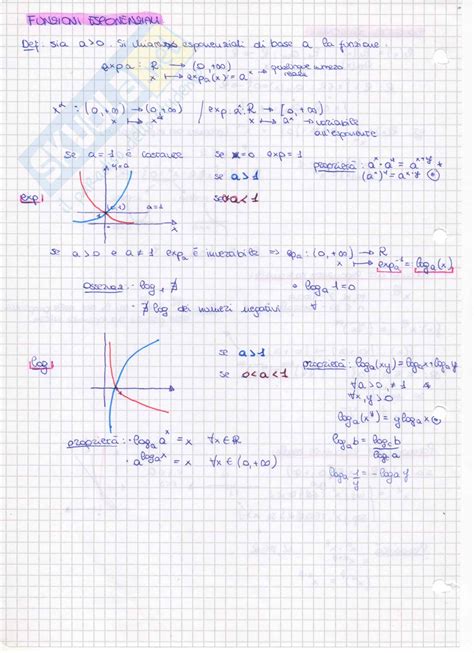 FUNZIONI ESPONENZIALI
Def. sia a>0. Si chiama esponenziali di base a la funzione:
expₐ : R → (0,+∞)
x ↦ expₐ(x) = aˣ → qualunque numero reale
x^α : (0,+∞) → (0,+∞) / exp. aˣ: R → [0,+∞)
x ↦ x^α x ↦ aˣ → variabile all'esponente
se a=1 è costante se x=0 exp=1 proprietà: aˣ · aʸ = aˣ⁺ʸ
y=a se a>1 (aˣ)ʸ = aˣ˙ʸ
exp a=1 se 0<a<1
x
se a>0 e a≠1 expₐ è invertibile ⇒ : (0,+∞) → R
x ↦ expₐ⁻¹ = logₐ(x)
Osserva: · log₁ ∄ · logₐ1=0
· ∄ log dei numeri negativi
log se a>1 proprietà: logₐ(xy) = logₐx+logₐy
se 0<a<1 ∀a>0, ≠1
∀x,y>0
logₐ(xʸ) = y logₐx
proprietà: · logₐaˣ = x ∀x∈R logₐb = log_c b / log_c a
a^(logₐx) = x ∀x∈(0,+∞)
logₐ 1/y = −logₐy